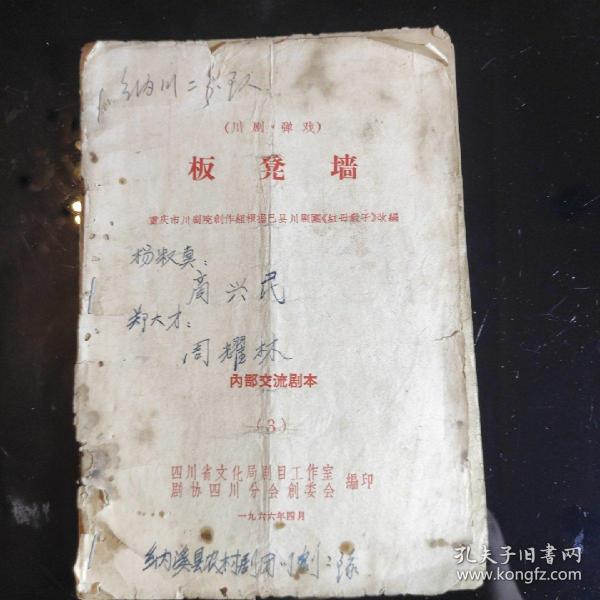 纳川二家队
（川剧·弹戏）
板凳墙
重庆市川剧院創作組根据巴县川剧团《紅母教子》改編
杨淑真：
高兴民
郑大才：
周耀林
內部交流剧本
（3）
四川省文化局剧目工作室
剧协四川分会創委会 編印
一九六六年四月
纳溪县农村剧团川剧二队
孔夫子旧书网